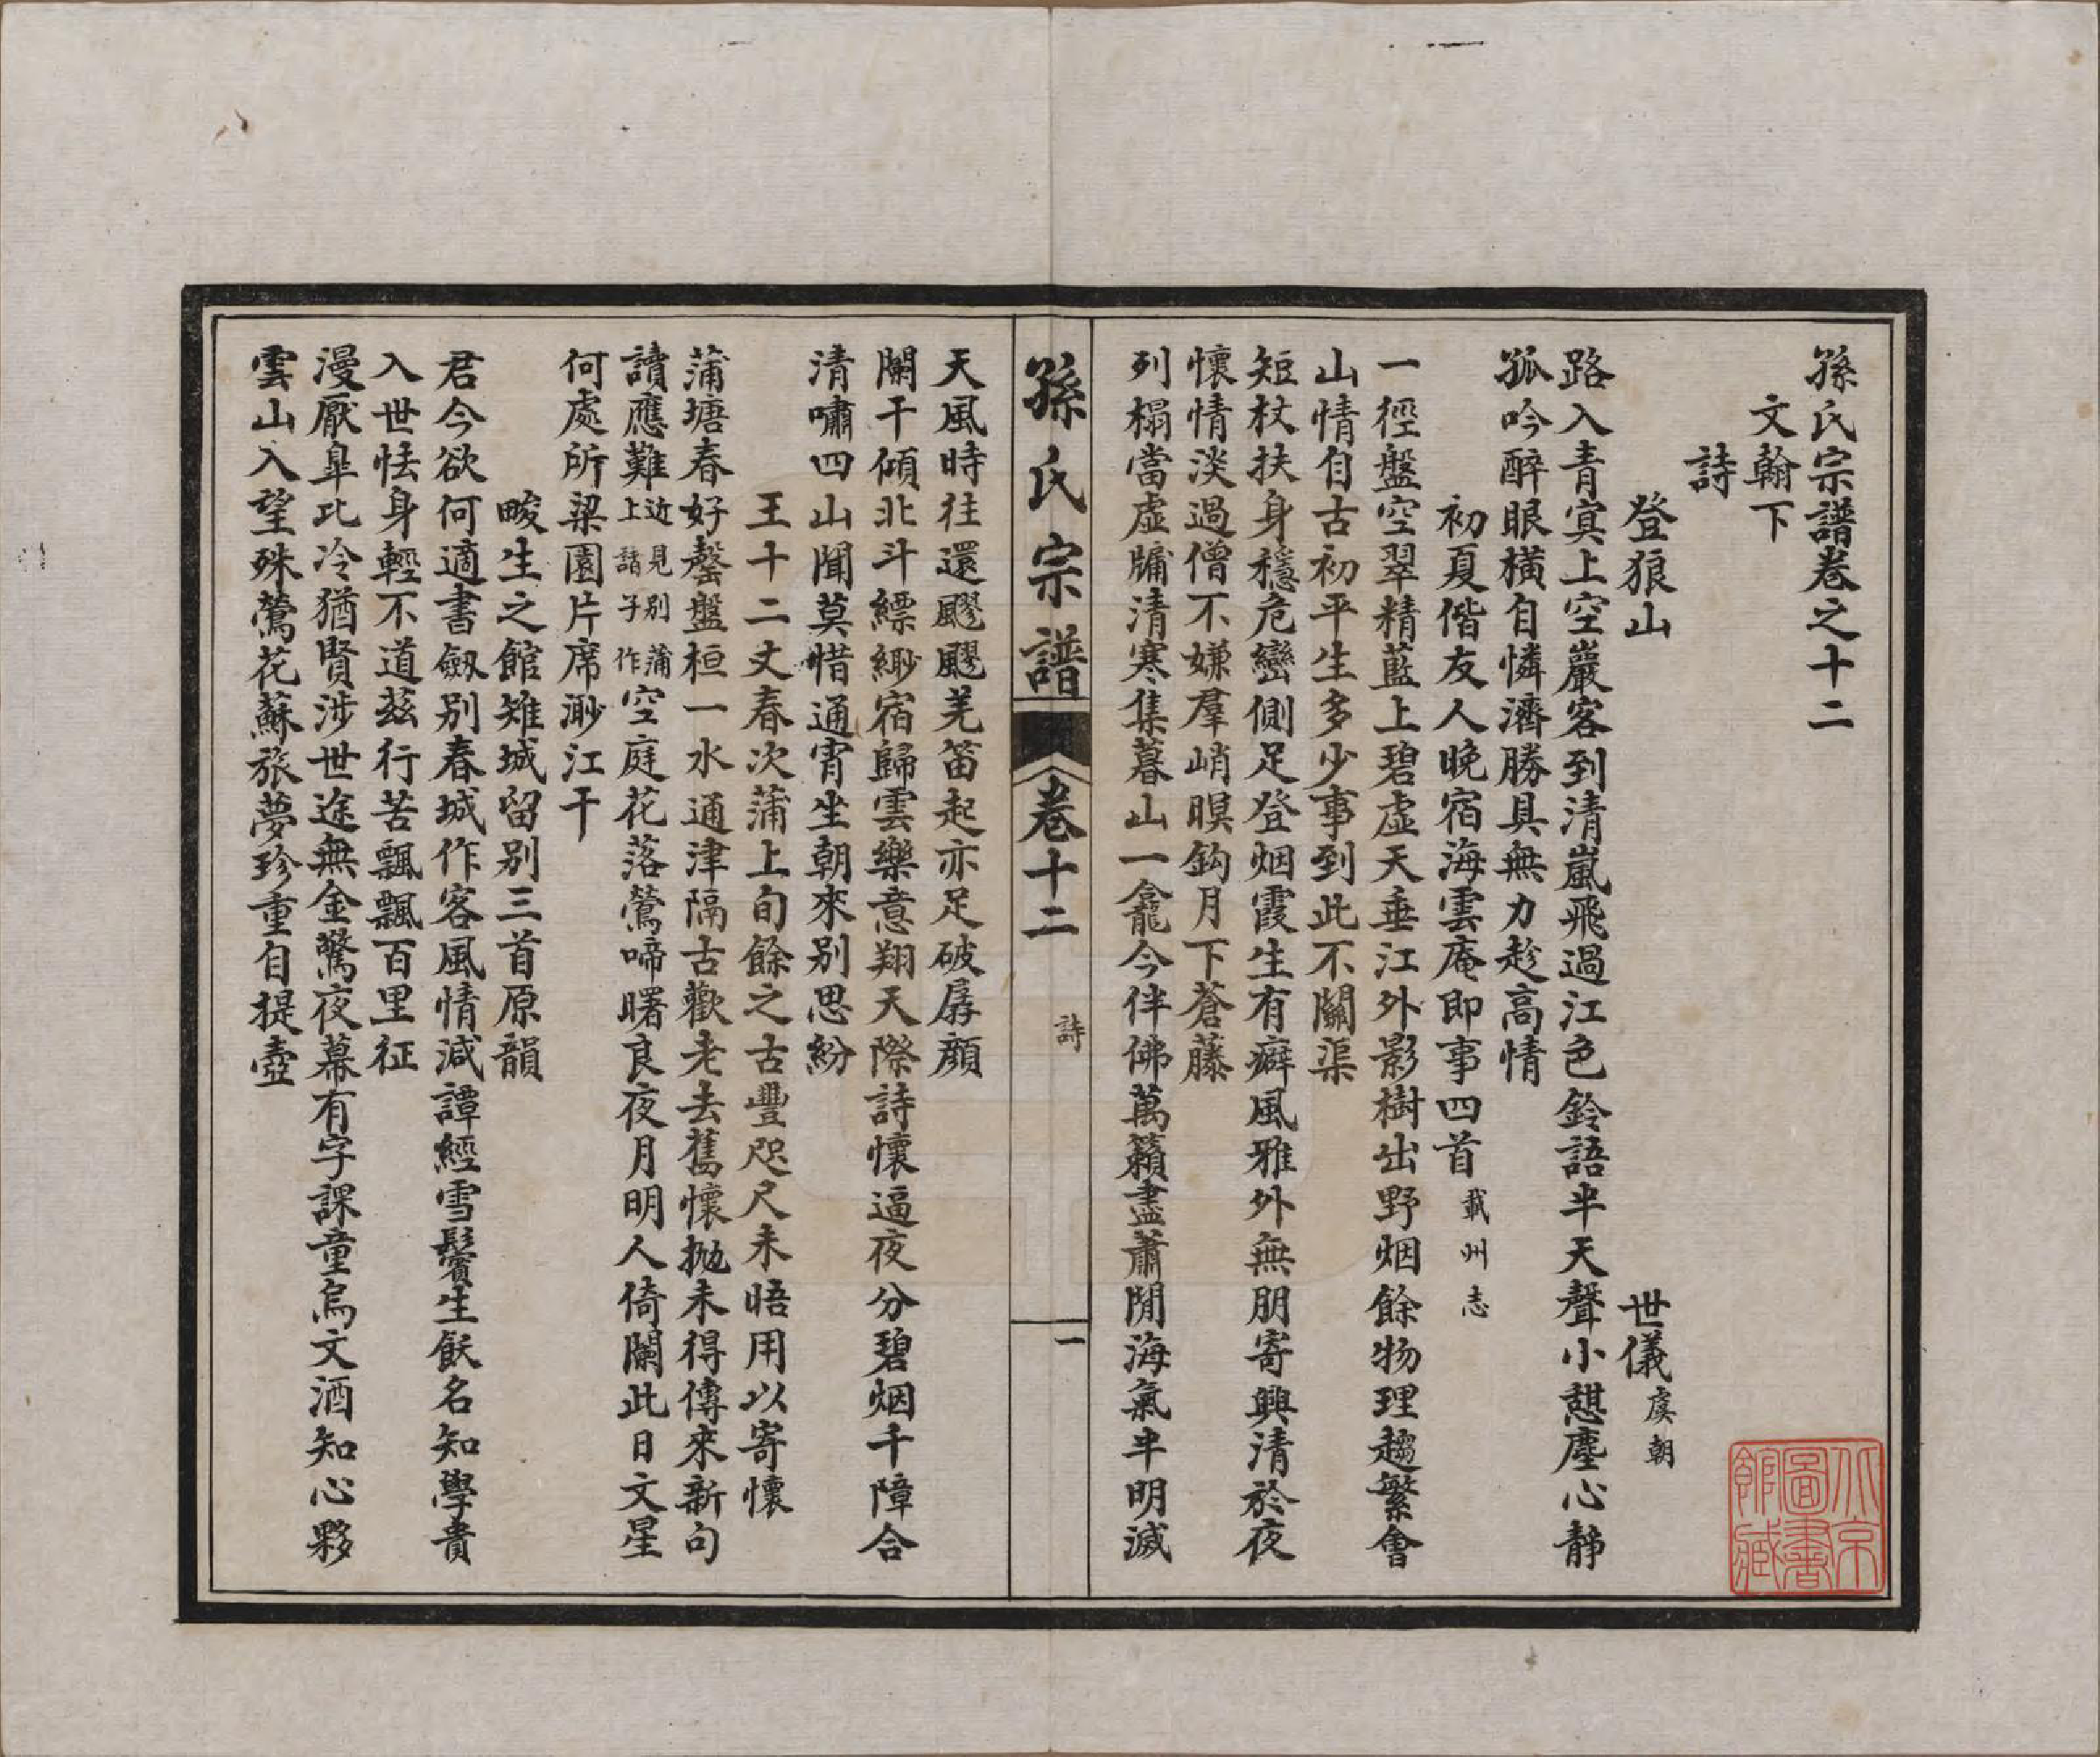 孫氏宗譜卷之十二
文翰下
詩
登狼山 世儀虞朝
路入青冥上空巖客到清嵐飛過江色鈴語半天聲小憇塵心靜
孤吟醉眼橫自憐濟勝具無力趁高情
初夏偕友人晚宿海雲庵即事四首載州志
一徑盤空翠精藍上碧虛天垂江外影樹出野烟餘物理趨繁會
山情自古初平生多少事到此不關渠
短杖扶身穩危巒側足登烟霞生有癖風雅外無朋寄興清於夜
懷情淡過僧不嫌羣峭暝鈎月下蒼藤
列榻當虛牖清寒集暮山一龕今伴佛萬籟盡蕭閒海氣半明滅
孫氏宗譜 卷十二 詩 一
天風時往還飂飂羌笛起亦足破孱顏
闌干傾北斗縹緲宿歸雲樂意翔天際詩懷逼夜分碧烟千障合
清嘯四山聞莫惜通宵坐朝來別思紛
王十二丈春次蒲上旬餘之古豐咫尺未晤用以寄懷
蒲塘春好罄盤桓一水通津隔古歡老去舊懷拋未得傳來新句
讀應難近見別蒲上諸子作空庭花落鶯啼曙良夜月明人倚闌此日文星
何處所梁園片席渺江干
畯生之館雉城留別三首原韻
君今欲何適書劒別春城作客風情減譚經雪鬢生飫名知學貴
入世怯身輕不道茲行苦飄飄百里征
漫厭臯比冷猶賢涉世途無金驚夜幕有字課童烏文酒知心夥
雲山入望殊鶯花蘇旅夢珍重自提壺
北京圖書館藏